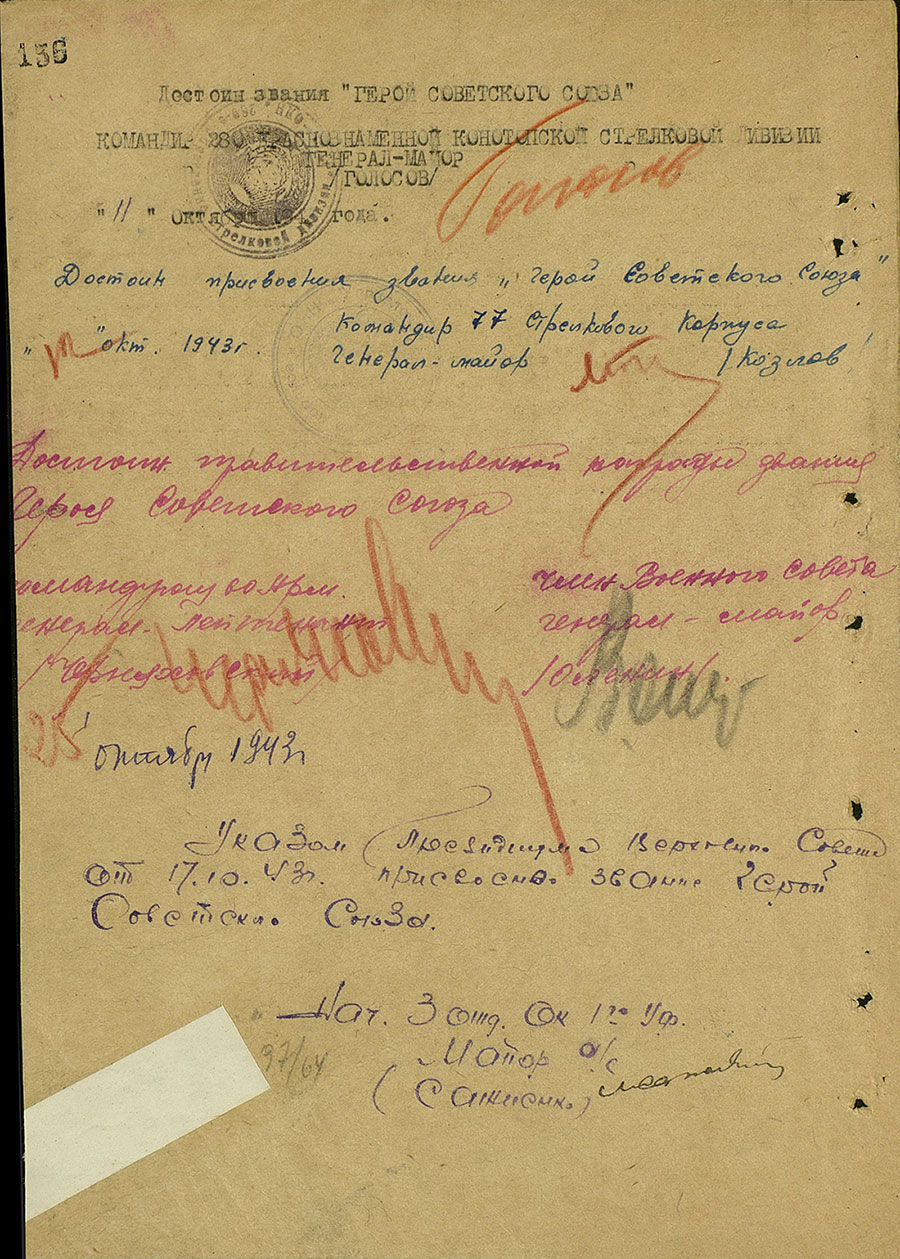 136
Достоин звания "ГЕРОЙ СОВЕТСКОГО СОЮЗА"
КОМАНДИР 280 КРАСНОЗНАМЕННОЙ КОНОТОПСКОЙ СТРЕЛКОВОЙ ДИВИЗИИ
ГЕНЕРАЛ-МАЙОР
/ГОЛОСОВ/
Голосов
"11" октября года.
стрелковой дивизии
Достоин присвоения звания „Герой Советского Союза"
Командир 77 Стрелкового Корпуса
" " окт. 1943г.
Генерал-майор /Козлов/
Достоин правительственной награды звания
Героя Советского Союза
Командующ 60 Арм.
генерал-лейтенант
/Черняховский/
член Военного совета
генерал-майор
/Оленин/.
25 октября 1943г
Указом Президиума Верховно. Совета
от 17.10.43г. присвоено звание Герой
Советско. Союза.
Нач. 3 отд. Ок 1го Уф.
Майор а/с
97/64